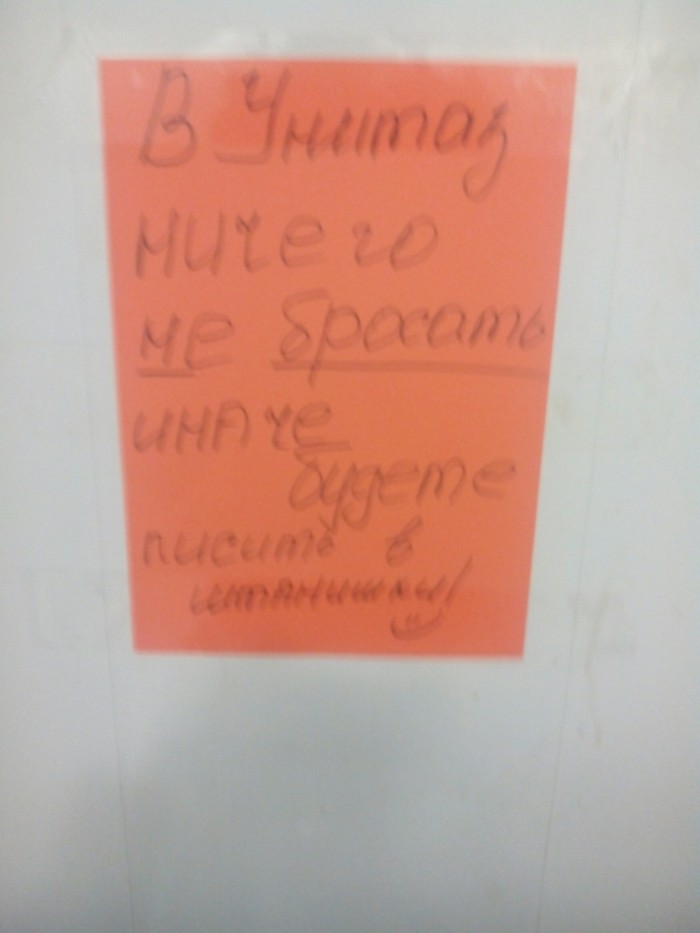 В Унитаз
ничего
не бросать
иначе
будете
писить в
штанишки!